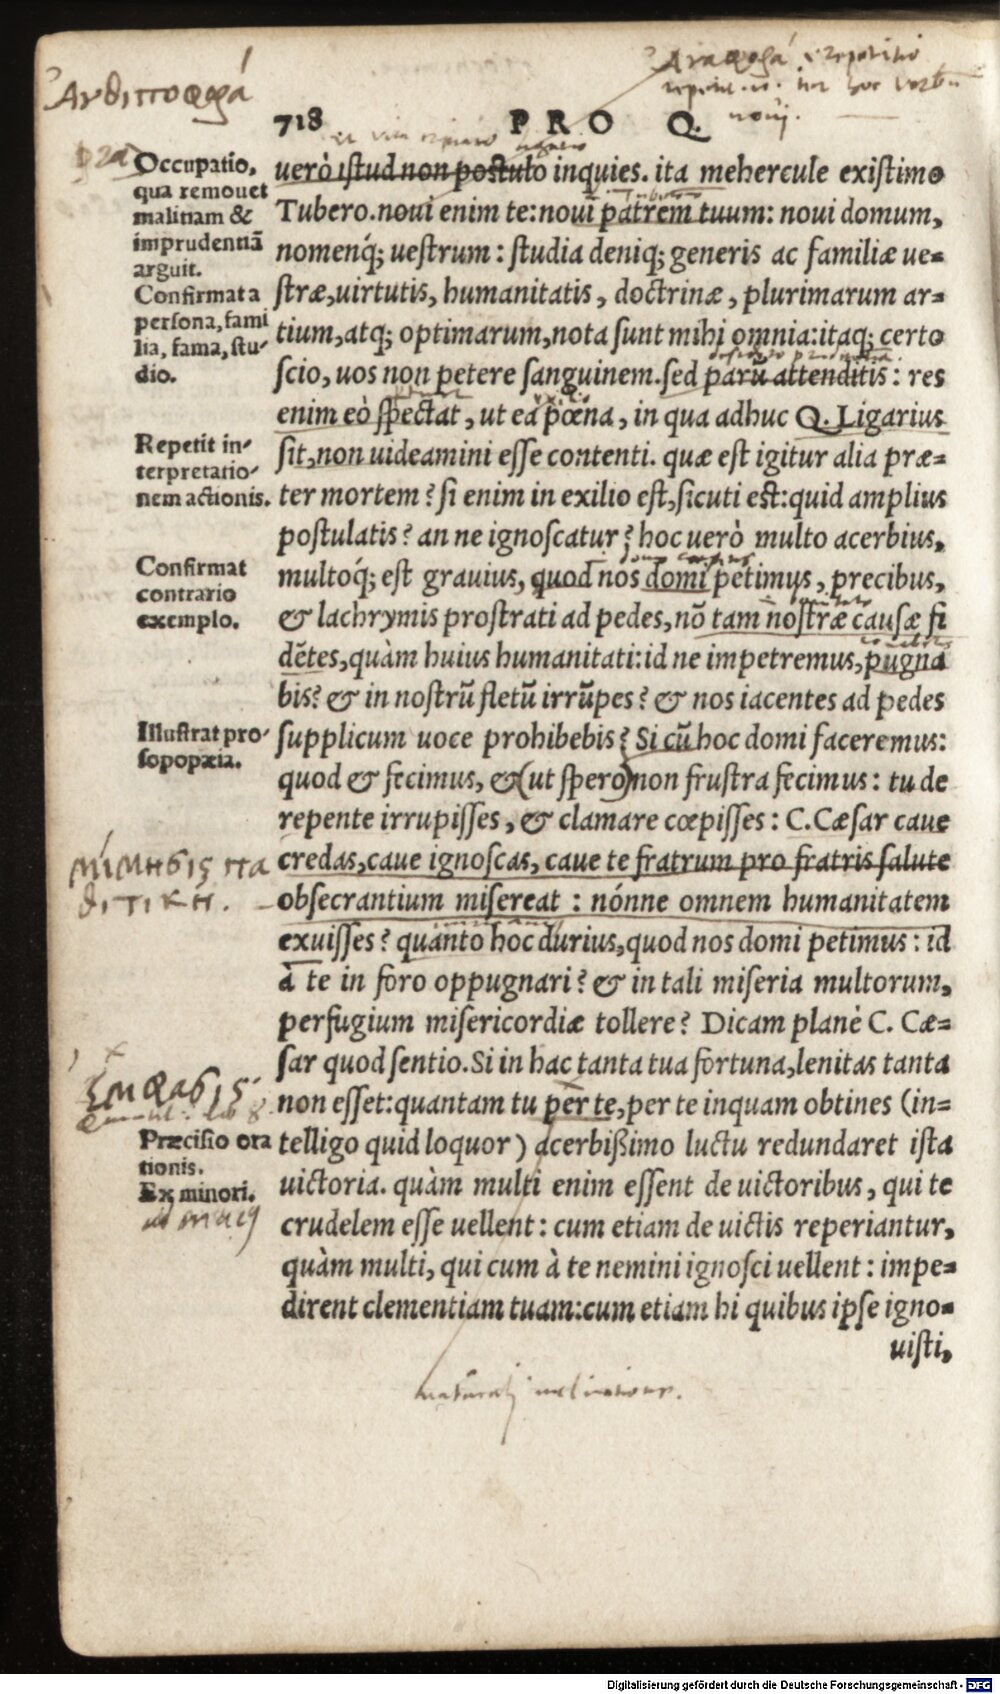 Ἀνθιποφορά
Ἀναφορά, repetitio
noui.
718 PRO Q.
Occupatio,
qua remouet
malitiam &
imprudentiã
arguit.
Confirmat a
persona, fami
lia, fama, stu-
dio.
Repetit in-
terpretatio-
nem actionis.
Confirmat
contrario
exemplo.
Illustrat pro-
sopopœia.
μίμησις πα
θιτική.
ἔμφασις
Præcisio ora
tionis.
Ex minori.
uerò istud non postulo inquies. ita mehercule existimo
Tubero. noui enim te: noui patrem tuum: noui domum,
nomenq́; uestrum: studia deniq; generis ac familiæ ue-
stræ, uirtutis, humanitatis, doctrinæ, plurimarum ar-
tium, atq; optimarum, nota sunt mihi omnia: itaq; certo
scio, uos non petere sanguinem. sed parũ attenditis: res
enim eò spectat, ut ea pœna, in qua adhuc Q. Ligarius
sit, non uideamini esse contenti. quæ est igitur alia præ-
ter mortem? si enim in exilio est, sicuti est: quid amplius
postulatis? an ne ignoscatur? hoc uerò multo acerbius,
multoq́; est grauius, quod nos domi petimus, precibus,
& lachrymis prostrati ad pedes, nõ tam nostræ causæ fi
dẽtes, quàm huius humanitati: id ne impetremus, pugna
bis? & in nostrũ fletũ irrũpes? & nos iacentes ad pedes
supplicum uoce prohibebis? Si cũ hoc domi faceremus:
quod & fecimus, & (ut spero) non frustra fecimus: tu de
repente irrupisses, & clamare cœpisses: C. Cæsar caue
credas, caue ignoscas, caue te fratrum pro fratris salute
obsecrantium misereat: nónne omnem humanitatem
exuisses? quanto hoc durius, quod nos domi petimus: id
à te in foro oppugnari? & in tali miseria multorum,
perfugium misericordiæ tollere? Dicam planè C. Cæ-
sar quod sentio. Si in hac tanta tua fortuna, lenitas tanta
non esset: quantam tu per te, per te inquam obtines (in-
telligo quid loquor) acerbißimo luctu redundaret ista
uictoria. quàm multi enim essent de uictoribus, qui te
crudelem esse uellent: cum etiam de uictis reperiantur,
quàm multi, qui cum à te nemini ignosci uellent: impe-
dirent clementiam tuam: cum etiam hi quibus ipse igno-
uisti,
naturali inclinatione.
Digitalisierung gefördert durch die Deutsche Forschungsgemeinschaft - DFG